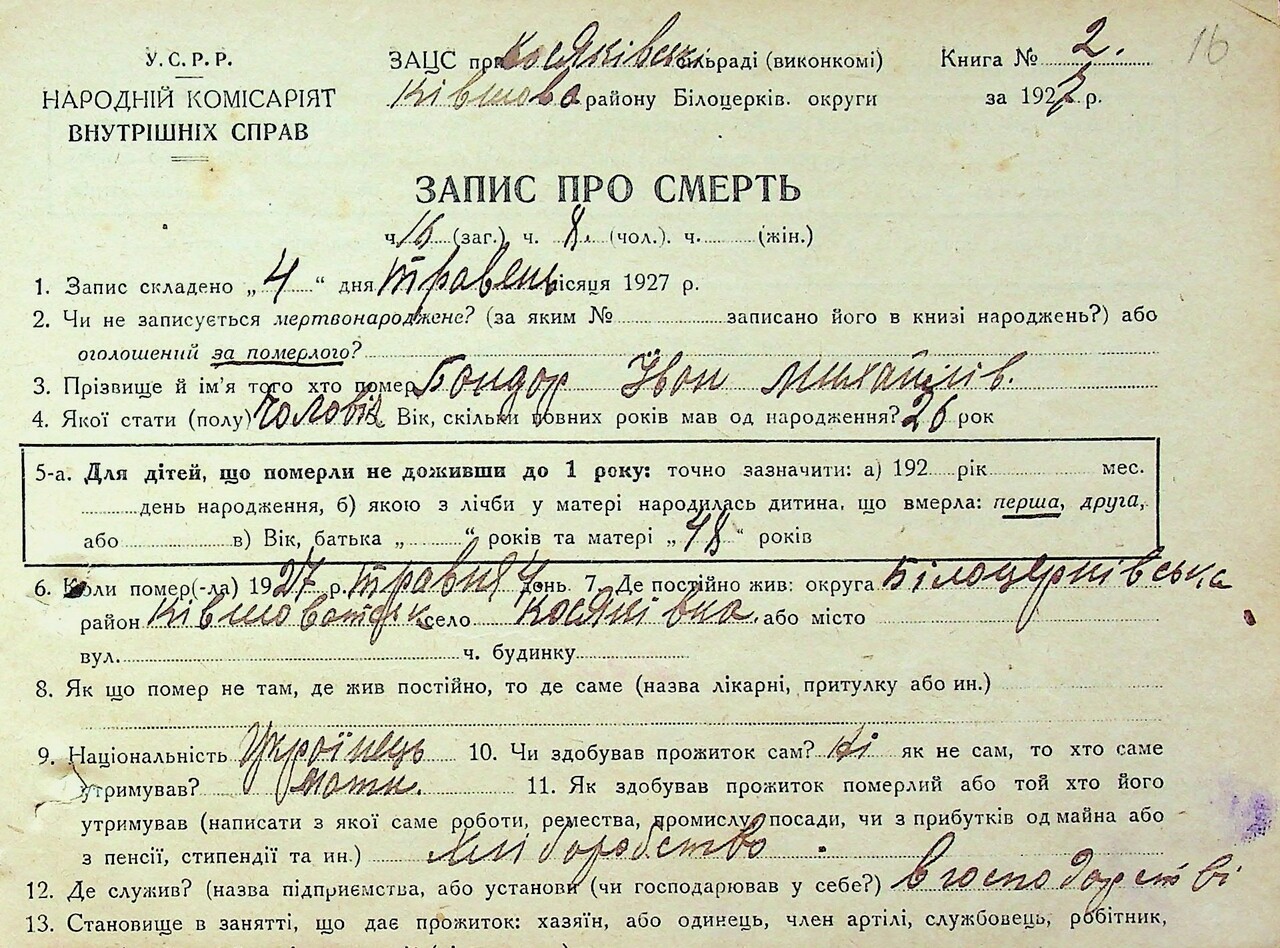 16
У.С.Р.Р. ЗАЦС при Косяківській сільраді (виконкомі) Книга № 2.
НАРОДНІЙ КОМІСАРІЯТ району Білоцерків. округи за 1927 р.
ВНУТРІШНІХ СПРАВ
ЗАПИС ПРО СМЕРТЬ
ч. 16 (заг.) ч. 8 (чол.). ч. (жін.)
1. Запис складено „ 4 “ дня травень місяця 1927 р.
2. Чи не записується мертвонароджене? (за яким № записано його в книзі народжень?) або
оголошений за померлого?
3. Прізвище й ім'я того хто помер Бондар Іван Михайлів.
4. Якої стати (полу) чоловік Вік, скільки повних років мав од народження? 26 рок
5-а. Для дітей, що померли не доживши до 1 року: точно зазначити: а) 192 рік мес.
день народження, б) якою з лічби у матері народилась дитина, що вмерла: перша, друга,
або в) Вік, батька „ “ років та матері „ 48 “ років
6. Коли помер(-ла) 1927 р. травня 4 день. 7. Де постійно жив: округа Білоцерківська
район село Косяківка або місто
вул. ч. будинку
8. Як що помер не там, де жив постійно, то де саме (назва лікарні, притулку або ин.)
9. Національність Українець 10. Чи здобував прожиток сам? ні як не сам, то хто саме
утримував? мати. 11. Як здобував прожиток померлий або той хто його
утримував (написати з якої саме роботи, ремества, промислу, посади, чи з прибутків од майна або
з пенсії, стипендії та ин.) хліборобство
12. Де служив? (назва підприємства, або установи (чи господарював у себе?) в господарстві
13. Становище в занятті, що дає прожиток: хазяїн, або одинець, член артілі, службовець, робітник,